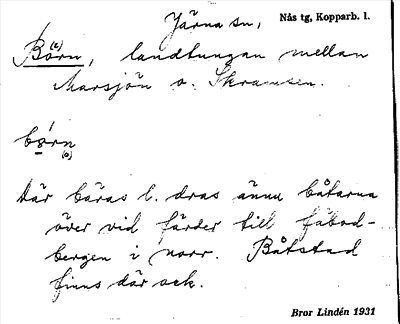 Järna sn, Nås tg, Kopparb. l.
Born, landtungan mellan
(o)
Marsjön o. Skramsen.
bo̱rn
(o)
Där bäras l. dras ännu båtarna
över vid färder till fäbod-
bergen i norr. Båtstad
finns där ock.
Bror Lindén 1931